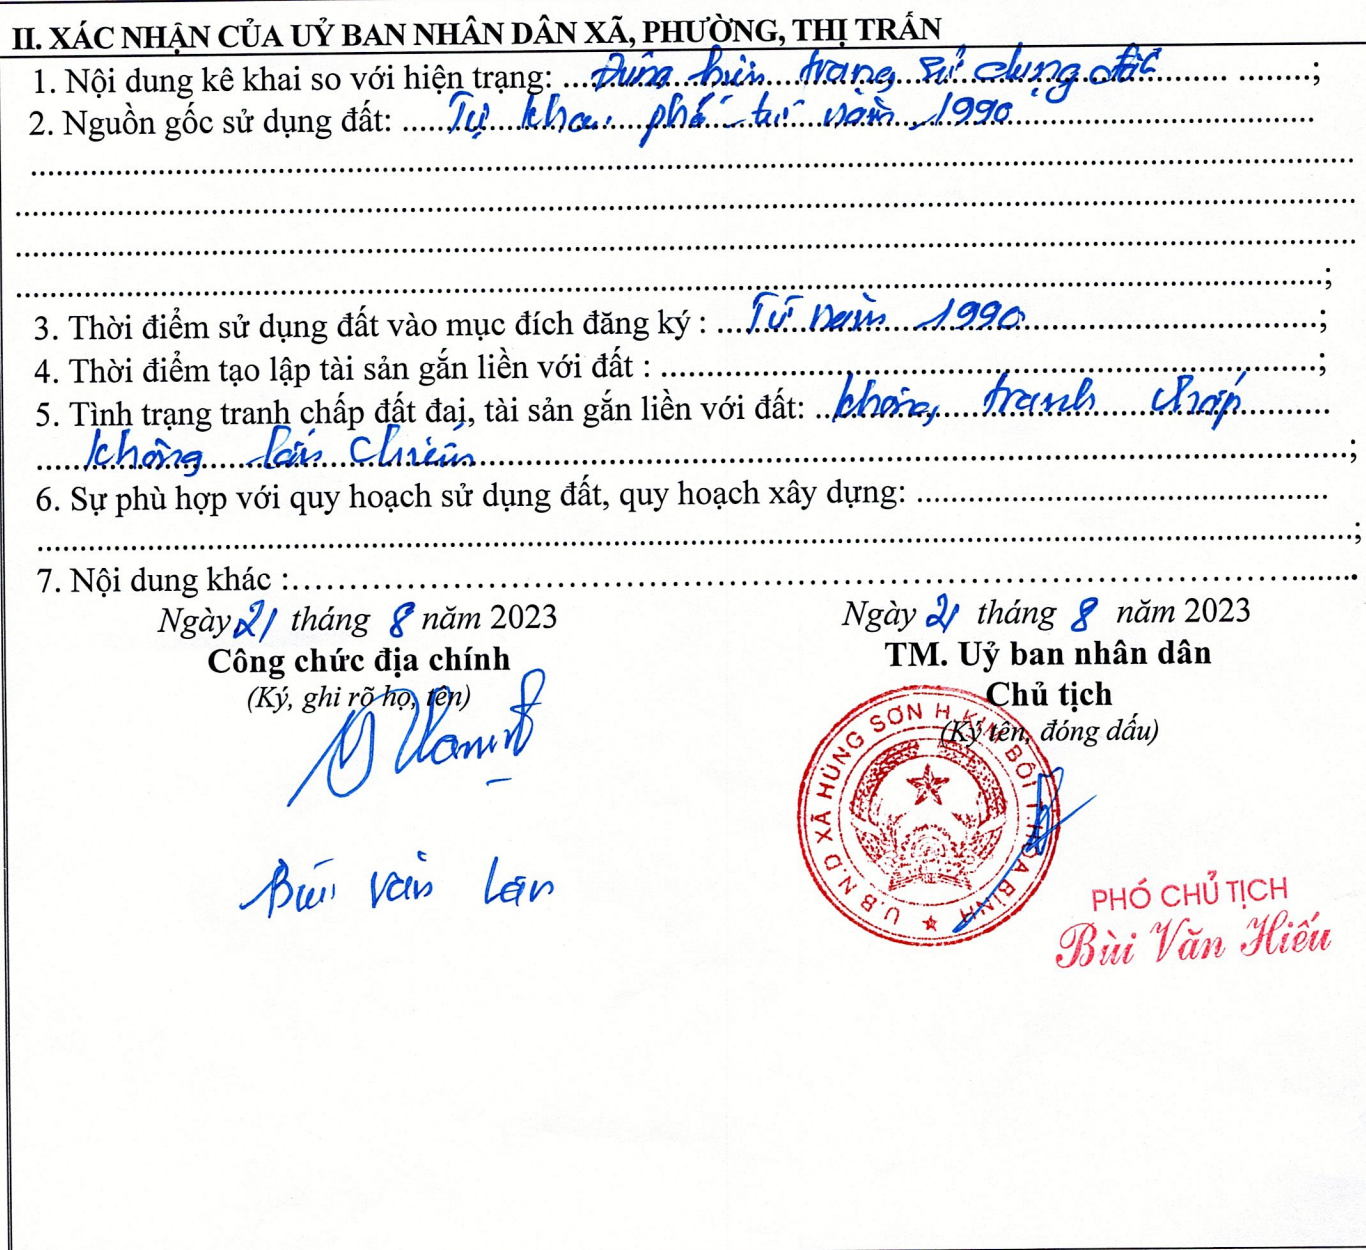 II. XÁC NHẬN CỦA UỶ BAN NHÂN DÂN XÃ, PHƯỜNG, THỊ TRẤN
1. Nội dung kê khai so với hiện trạng: ...Đúng hiện trạng sử dụng đất...... ........;
2. Nguồn gốc sử dụng đất: .....Tự khai phá từ năm 1990......
3. Thời điểm sử dụng đất vào mục đích đăng ký : ...Từ năm 1990......;
4. Thời điểm tạo lập tài sản gắn liền với đất : ......;
5. Tình trạng tranh chấp đất đai, tài sản gắn liền với đất: ..không tranh chấp......
.....không lấn chiếm......;
6. Sự phù hợp với quy hoạch sử dụng đất, quy hoạch xây dựng: ......
......;
7. Nội dung khác :......
Ngày 21 tháng 8 năm 2023
Công chức địa chính
(Ký, ghi rõ họ, tên)
Bùi Văn
Ngày 21 tháng 8 năm 2023
TM. Uỷ ban nhân dân
Chủ tịch
(Ký tên, đóng dấu)
U.B.N.D XÃ HÙNG SƠN H.KIM BÔI T.HOÀ BÌNH
PHÓ CHỦ TỊCH
Bùi Văn Hiếu